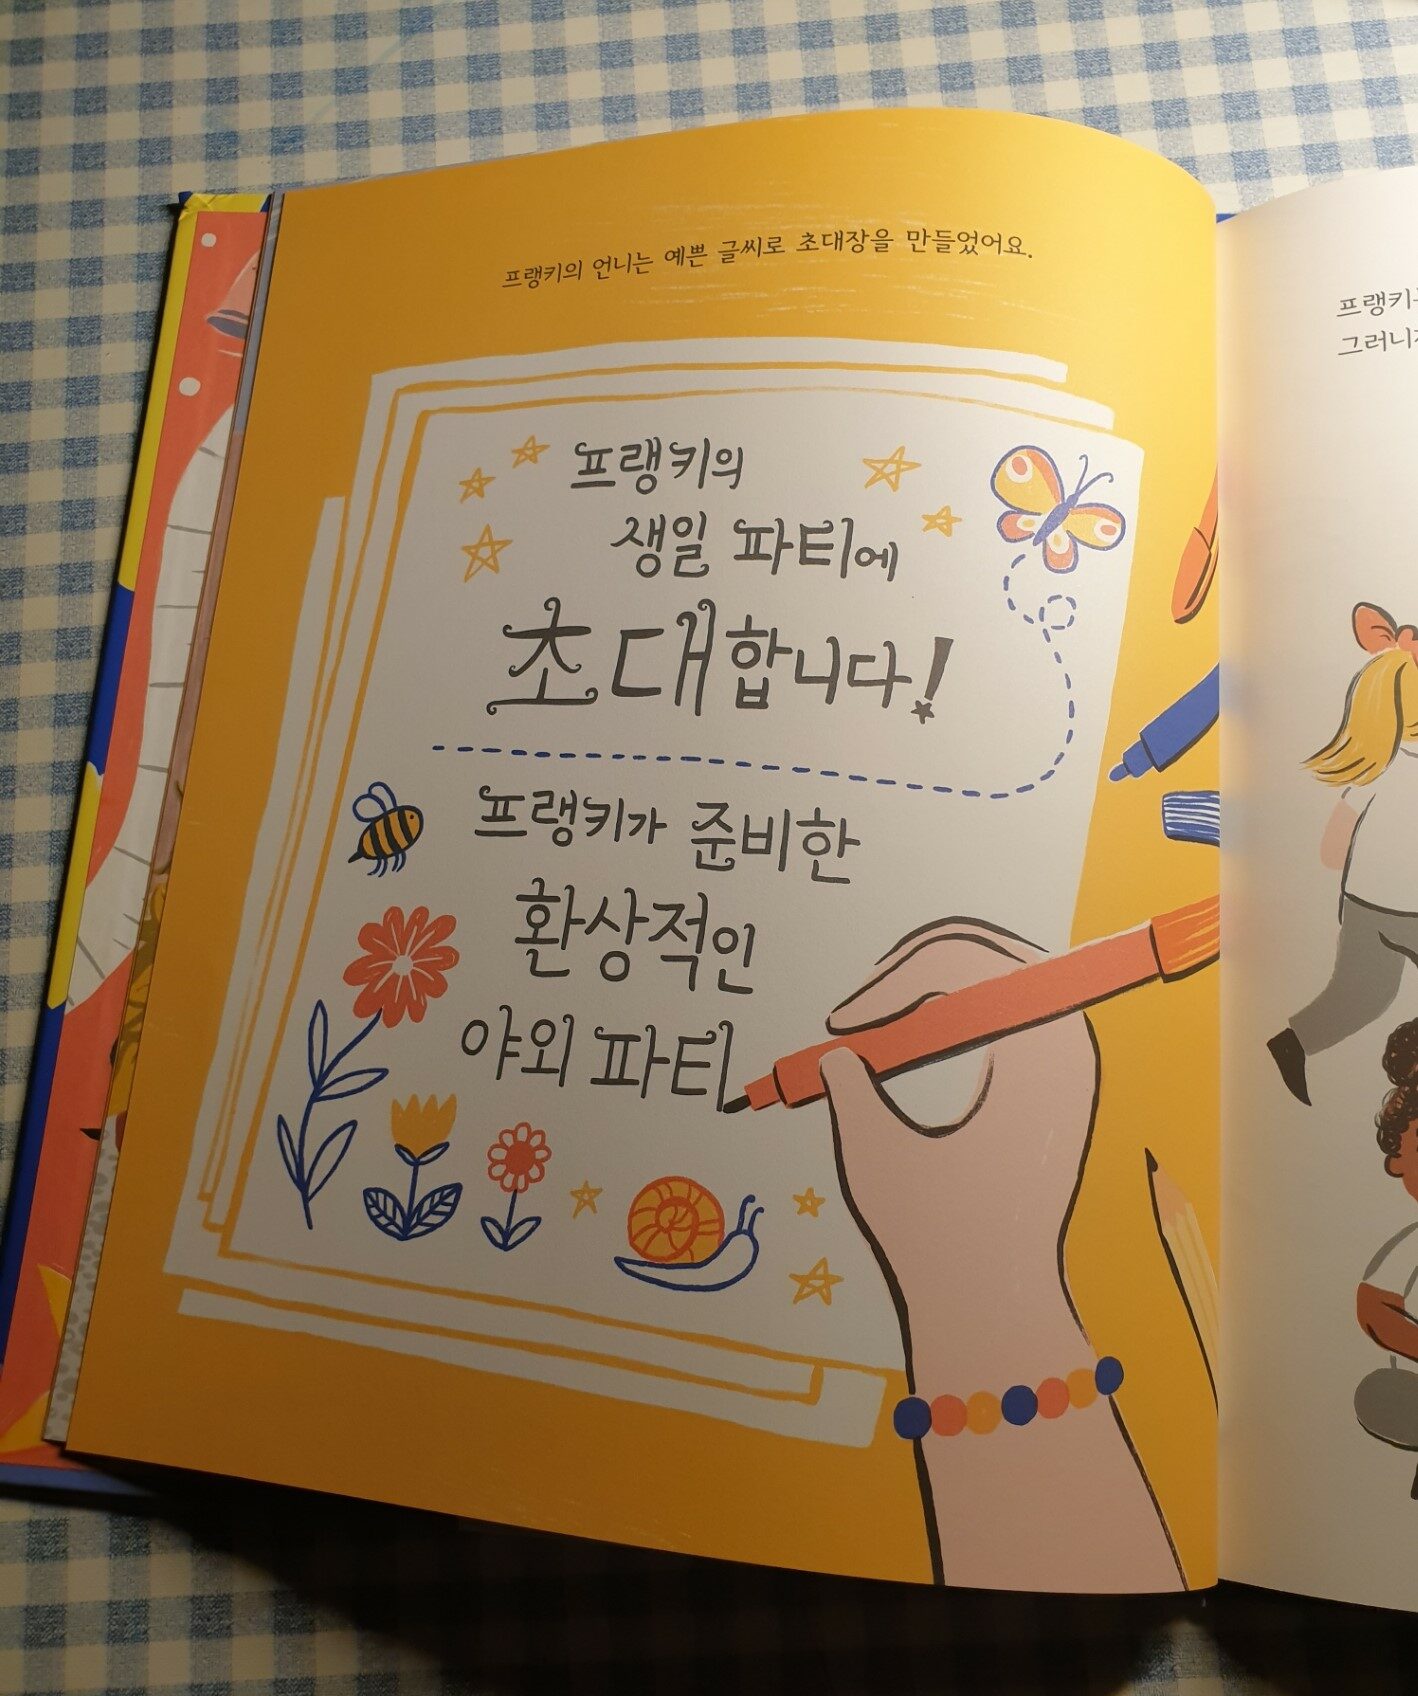 프랭키의 언니는 예쁜 글씨로 초대장을 만들었어요.
프랭키의
생일 파티에
초대합니다!
프랭키가 준비한
환상적인
야외 파티
프랭키
그러니